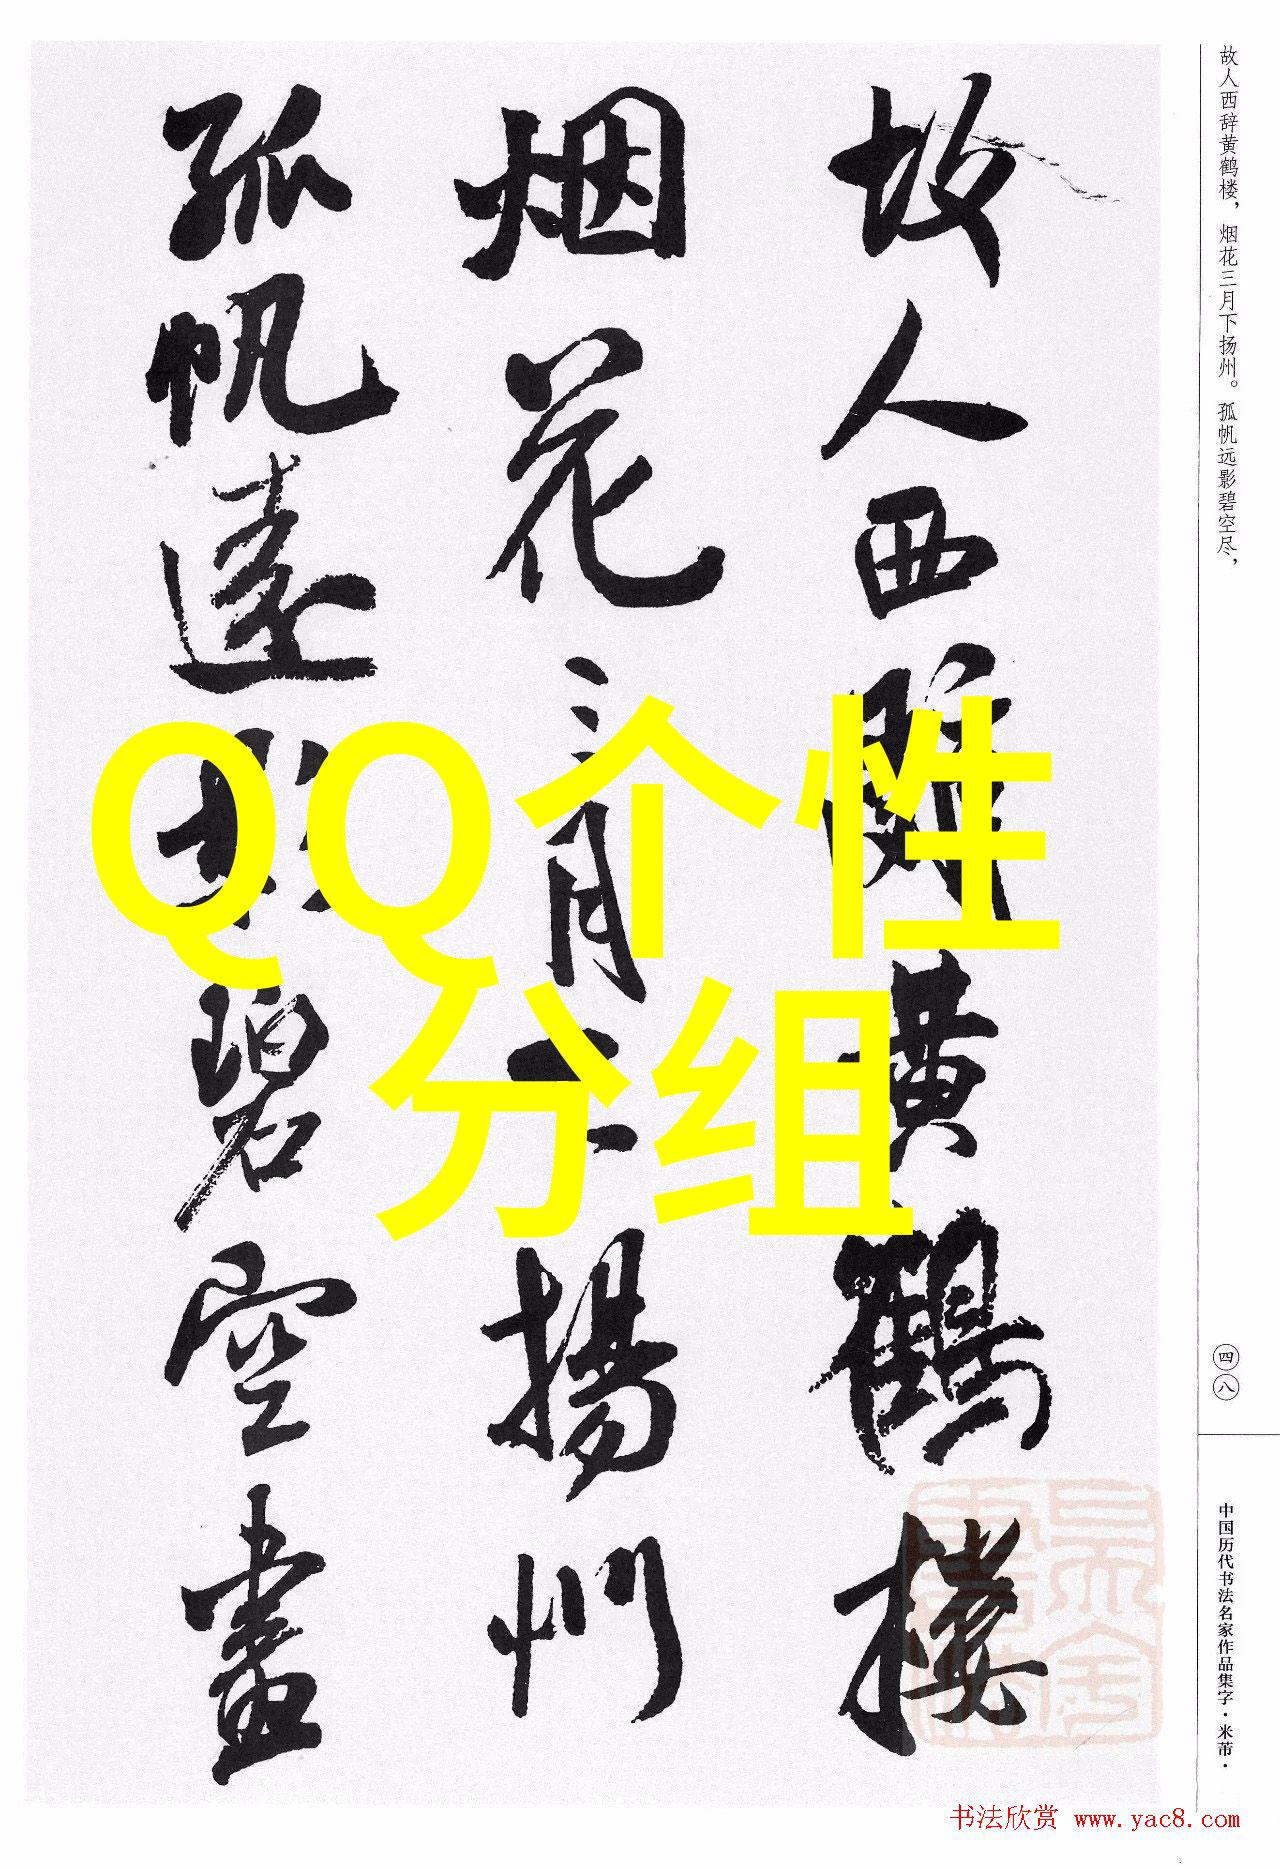 故人西辞黄鹤楼，烟花三月下扬州。孤帆远影碧空尽，
故人西辭黄鶴樓
烟花三月下揚州
孤帆遠影碧空盡
QQ个性
分组
四八
中国历代书法名家作品集字·米芾·
书法欣赏 www.yac8.com